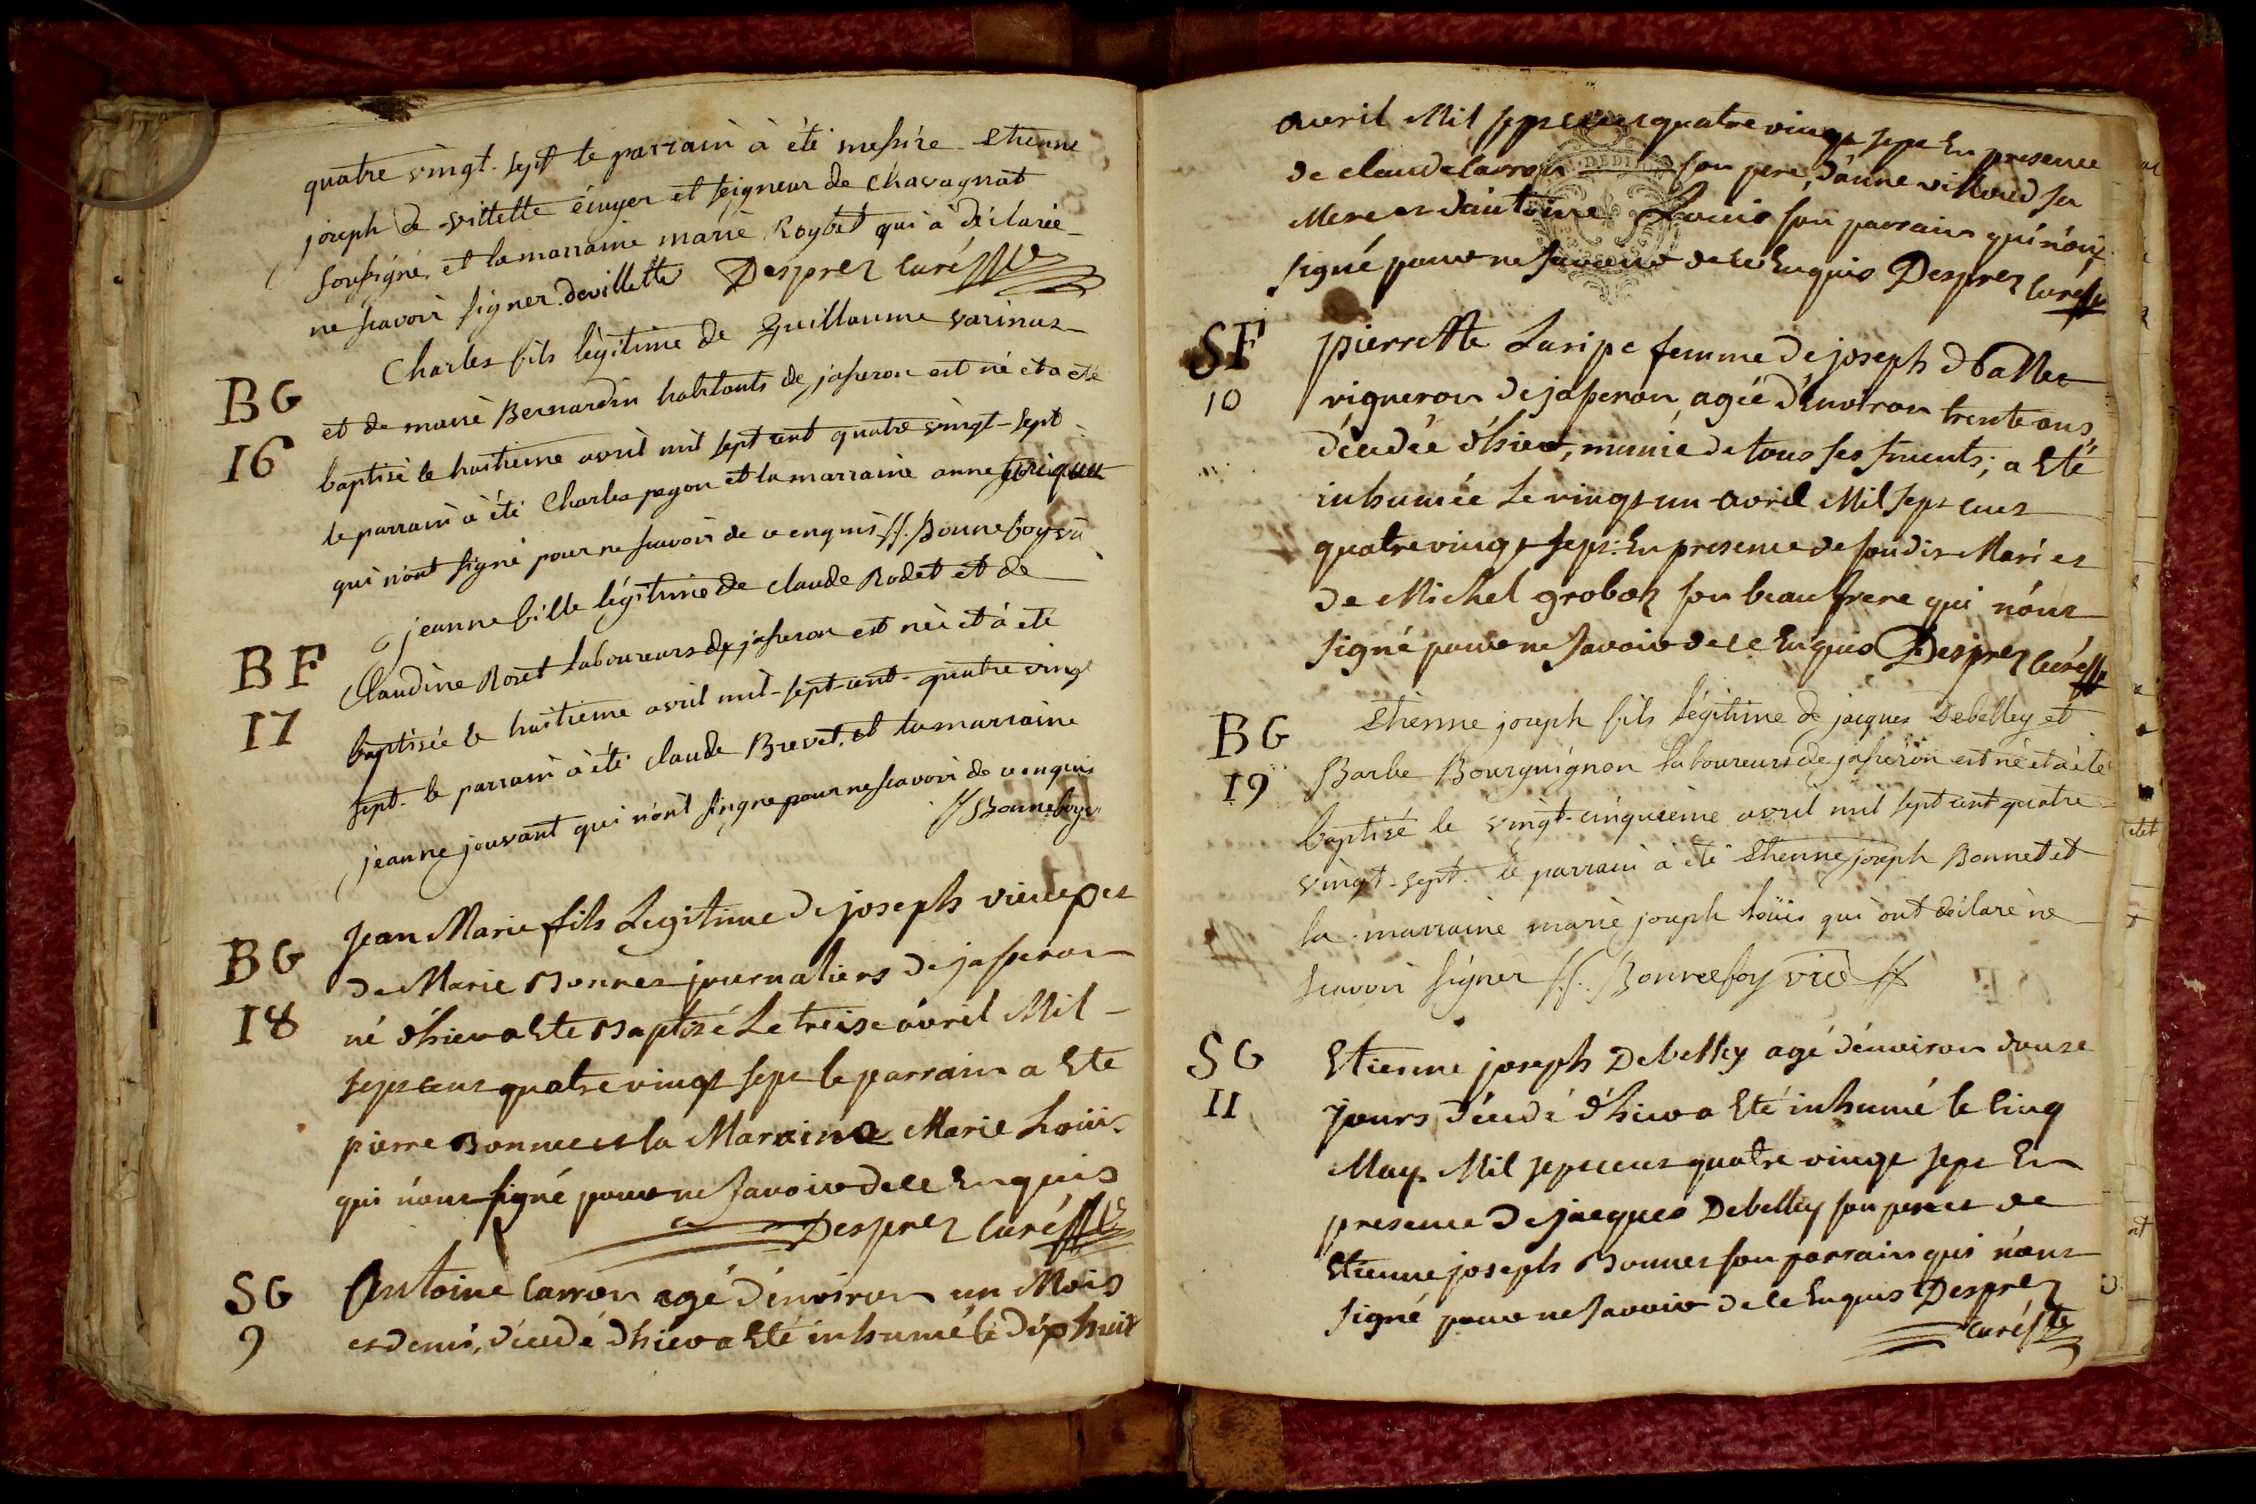 quatre vingt-sept le parrain à été messire Etienne
joseph de villette écuyer et seigneur de chavagnat
soussigné, et la marraine marie Roybet qui à déclarée
ne scavoir signer. devillette Desprez curé
BG
16
Charles fils lègitime de guillaume varinar
et de marie Bernardin habitants de jasseron est né et a été
baptisé le huitieme avril mil sept cent quatre vingt-sept
le parrain à été Charles pagon et la marraine anne
qui n'ont signé pour ne scavoir de ce enquis //. Bonnefoy vic
BF
17
jeanne fille légitime de claude Rodet et de
Claudine Roset laboureurs de jasseron est née et à été
baptisée le huitieme avril mil-sept-cent-quatre vingt
sept. le parrain à été claude Brevet, et la marraine
jeanne jouvant qui n'ont singne pour ne scavoir de ce enquis
// Bonnefoy v
BG
18
Jean Marie fils Legitime de joseph et
de Marie Bonnet journaliers de jasseron
né d'hier a Eté Baptisé Le treise avril Mil
sept cent quatre vingt sept le parrain a Eté
pierre Bonnet et la Maraine Marie Loüis
qui n'ont signé pour ne savoir de ce Enquis
Desprez Curé
SG
9
Antoine Carron agé d'environ un Mois
et demi, décedé d'hier a Eté inhumé le dix huit
avril Mil sept cent quatre vingt sept En presence
de claude Carron son pere, d'anne villoud sa
Mere et d'antoine Louis son parrain qui n'ont
signé pour ne savoir de ce Enquis Desprez Curé
SF
10
pierrette Laripe femme de joseph
vigneron de jasseron, agée d'environ trente ans,
décedée d'hier, munie de tous ses sments; a Eté
inhumée Le vingt un avril Mil sept cent
quatre vingt sept: En presence de son dit Mari et
de Michel groboz son beau frere qui n'ont
signé pour ne savoir de ce Enquis Desprez Curé
BG
19
Etienne joseph fils légitime de jacques Debelley et
Barbe Bourguignon laboureurs de jasseron est né et à été
baptisé le vingt-cinquieme avril mil sept cent quatre
vingt-sept. le parrain à été Etienne joseph Bonnet et
la marraine marie joseph loüis qui ont déclaré ne
scavoir signer //. Bonnefoy vic //
SG
11
Etienne joseph Debelley agé d'environ douze
jours, décedé d'hier a Eté inhumé le cinq
May Mil sept cent quatre vingt sept En
presence de jacques Debelley son pere et de
Etienne joseph Bonnet son parrain qui n'ont
signé pour ne savoir de ce Enquis Desprez
curé